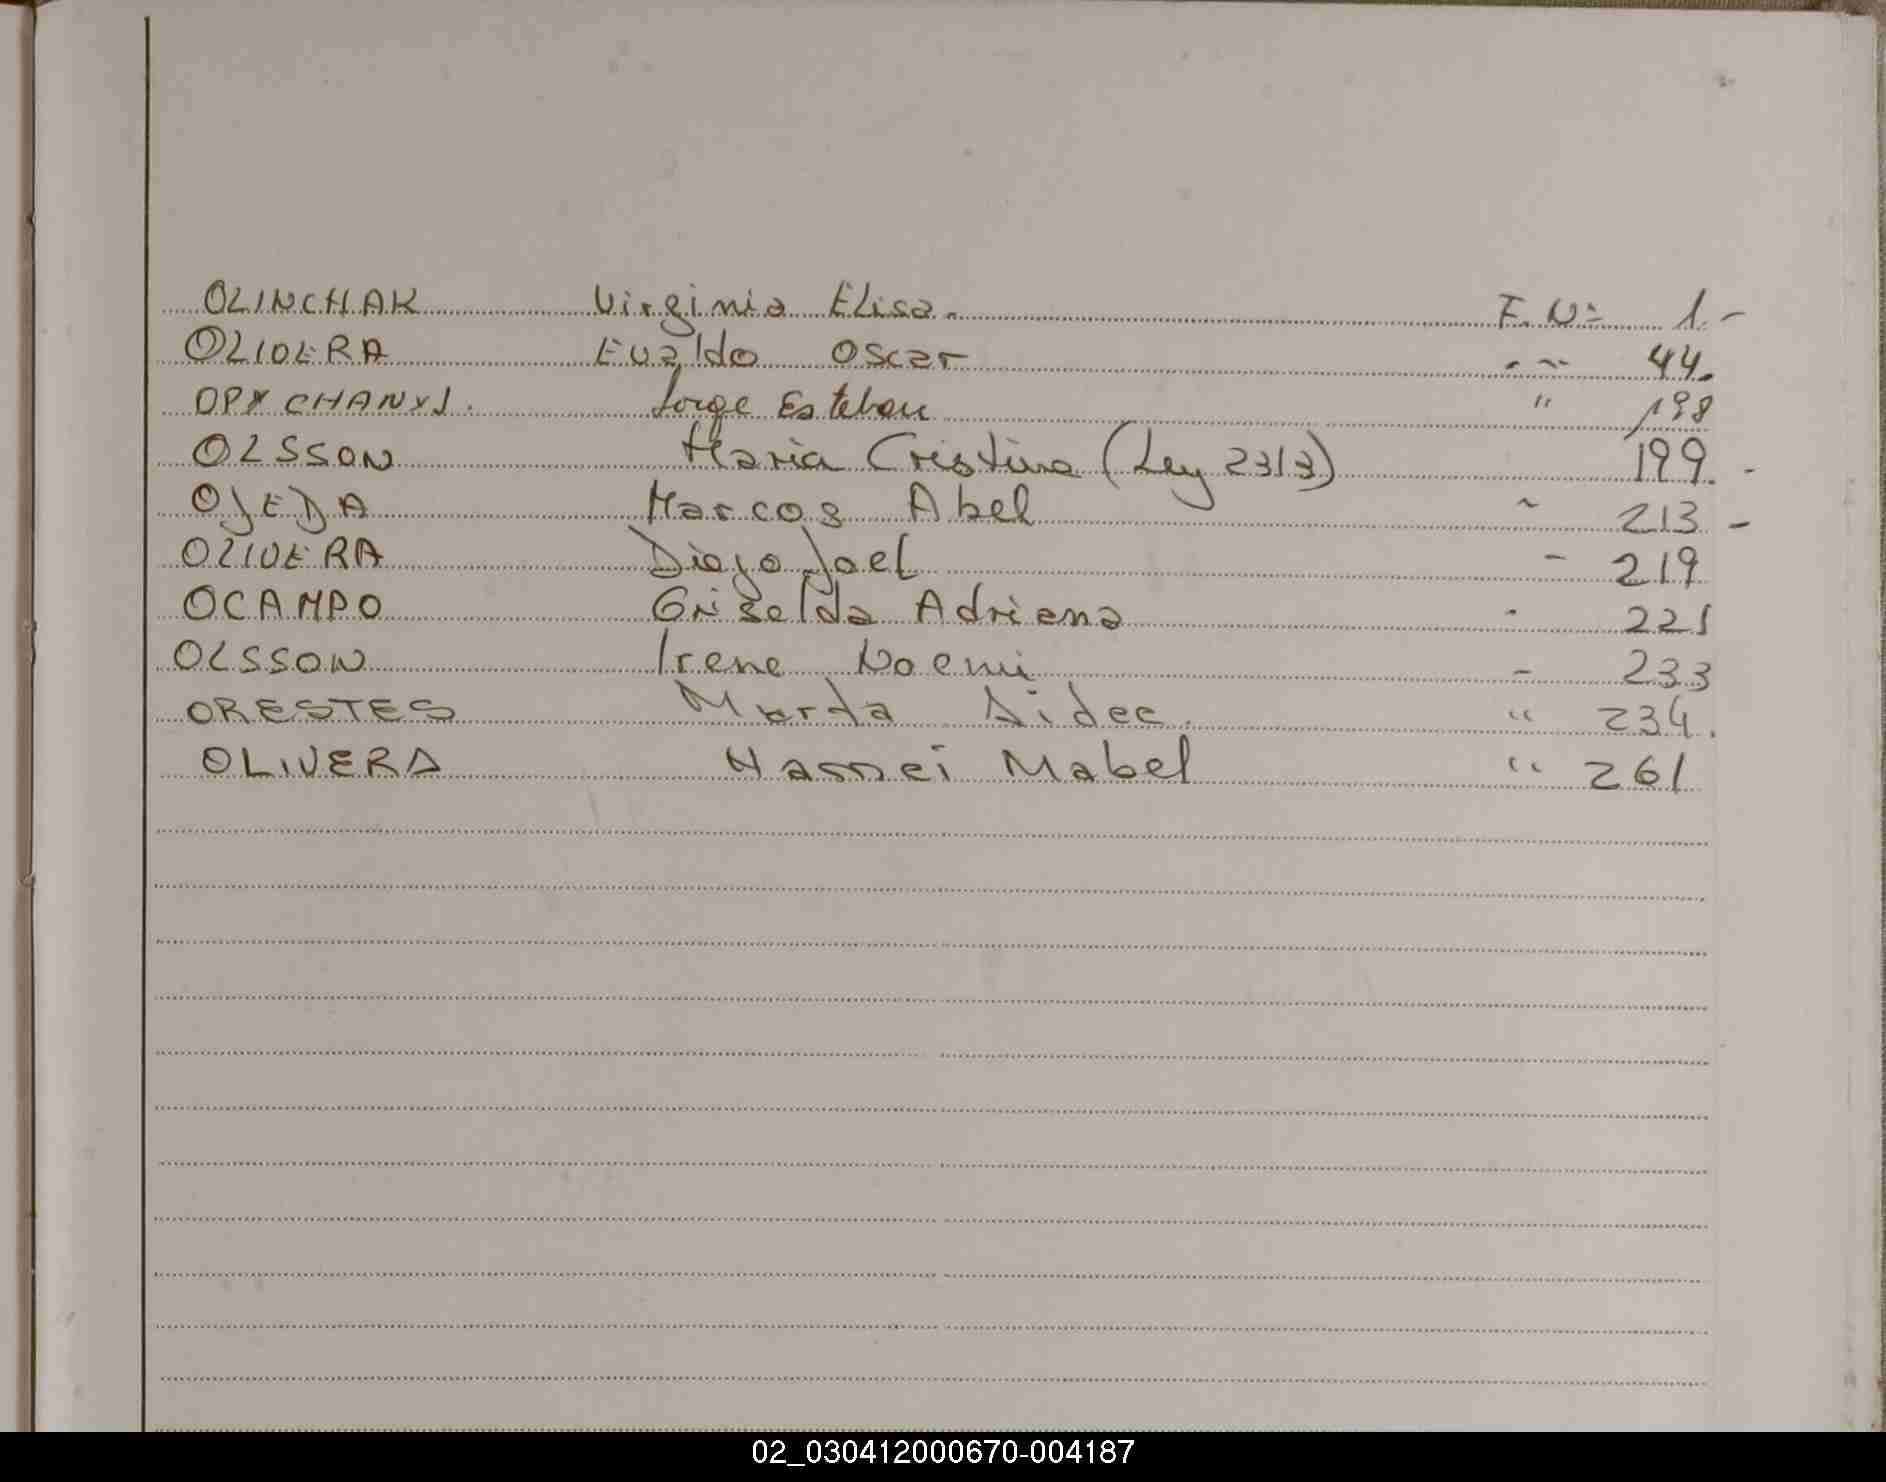 OLINCHAK Virginia Elisa. F. Nº 1.-
OLIVERA Evaldo Oscar " " 44.
Jorge Esteban " 198
OLSSON Maria Cristina (Ley 2313) 199.-
OJEDA Marcos Abel " 213-
OLIVERA Diego Joel - 219
OCAMPO Griselda Adriana " 221
OLSSON Irene Noemi - 233
ORESTES Marta Aidee. " 234.
OLIVERA Mabel " 261
02_030412000670-004187